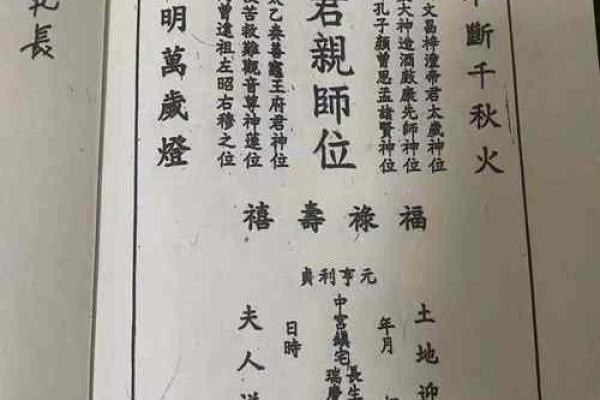 斷千秋火
文昌梓潼帝君太歲神位
大神造酒康先師神位
孔子顏曾思孟諸賢神位
君親師位
乙奏善竈王府君神位
苦救難觀音尊神蓮位
曾遠祖左昭右穆之位
明萬歲燈
福祿壽禧
元亨利貞
土地迎
年月
長生
中宮鎮宅
瑞慶
日時
夫人
長